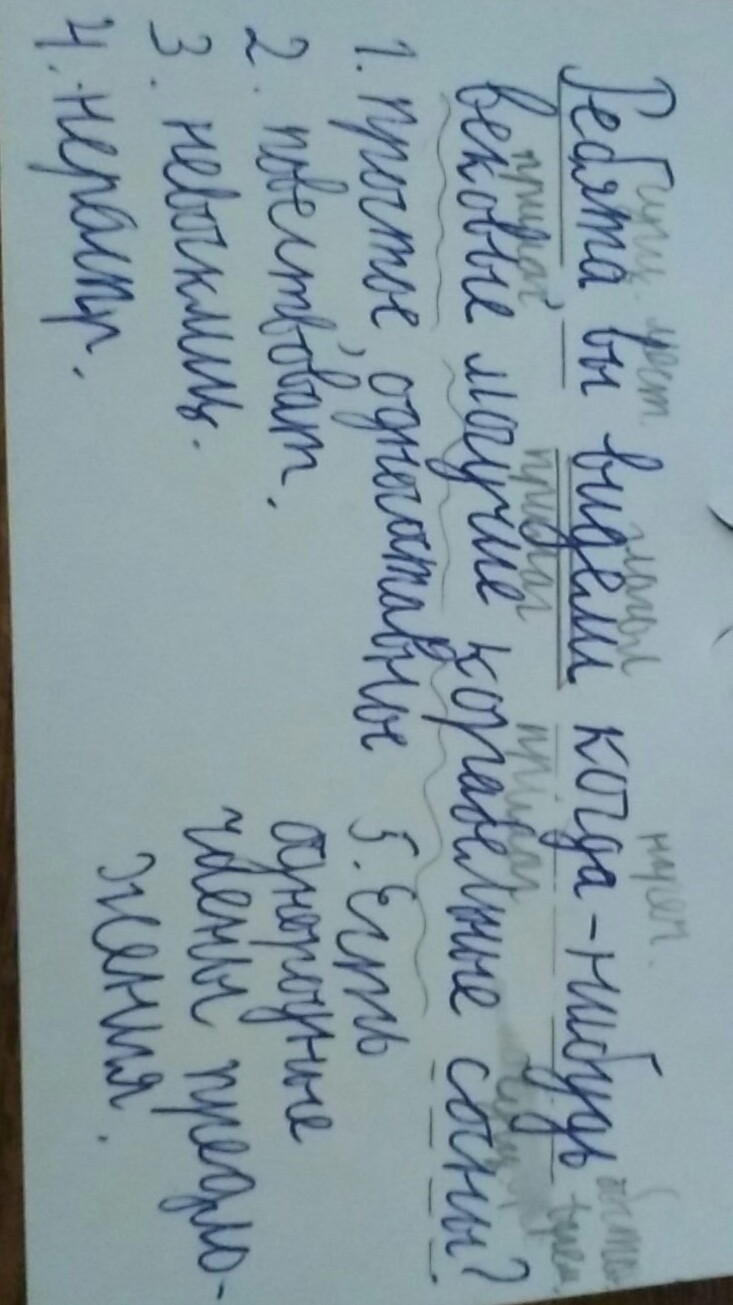 сущ. мест. глагол нареч.
Ребята вы видели когда-нибудь
прилаг прилаг прилаг
вековые, могучие корабельные сосны?
1. простое, односставное
2. повествоват.
3. невосклиц.
4. нераспр.
5. Есть
однородные
члены предло-
жения.